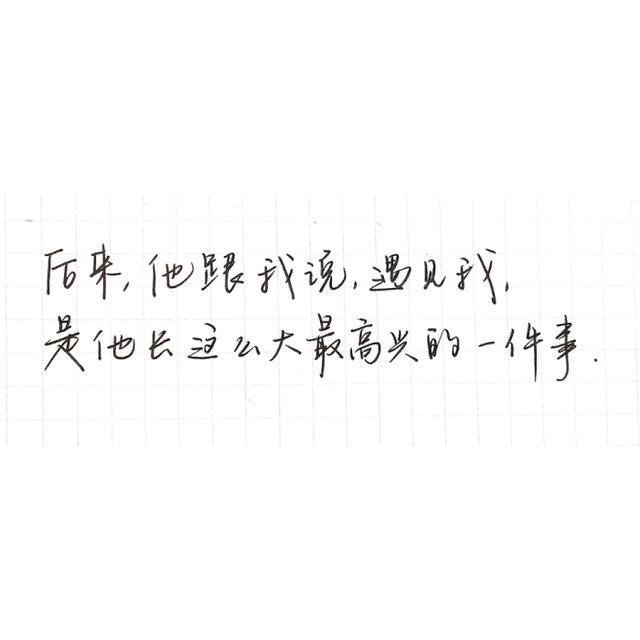 后来,他跟我说,遇见我,
是他长这么大最高兴的一件事.